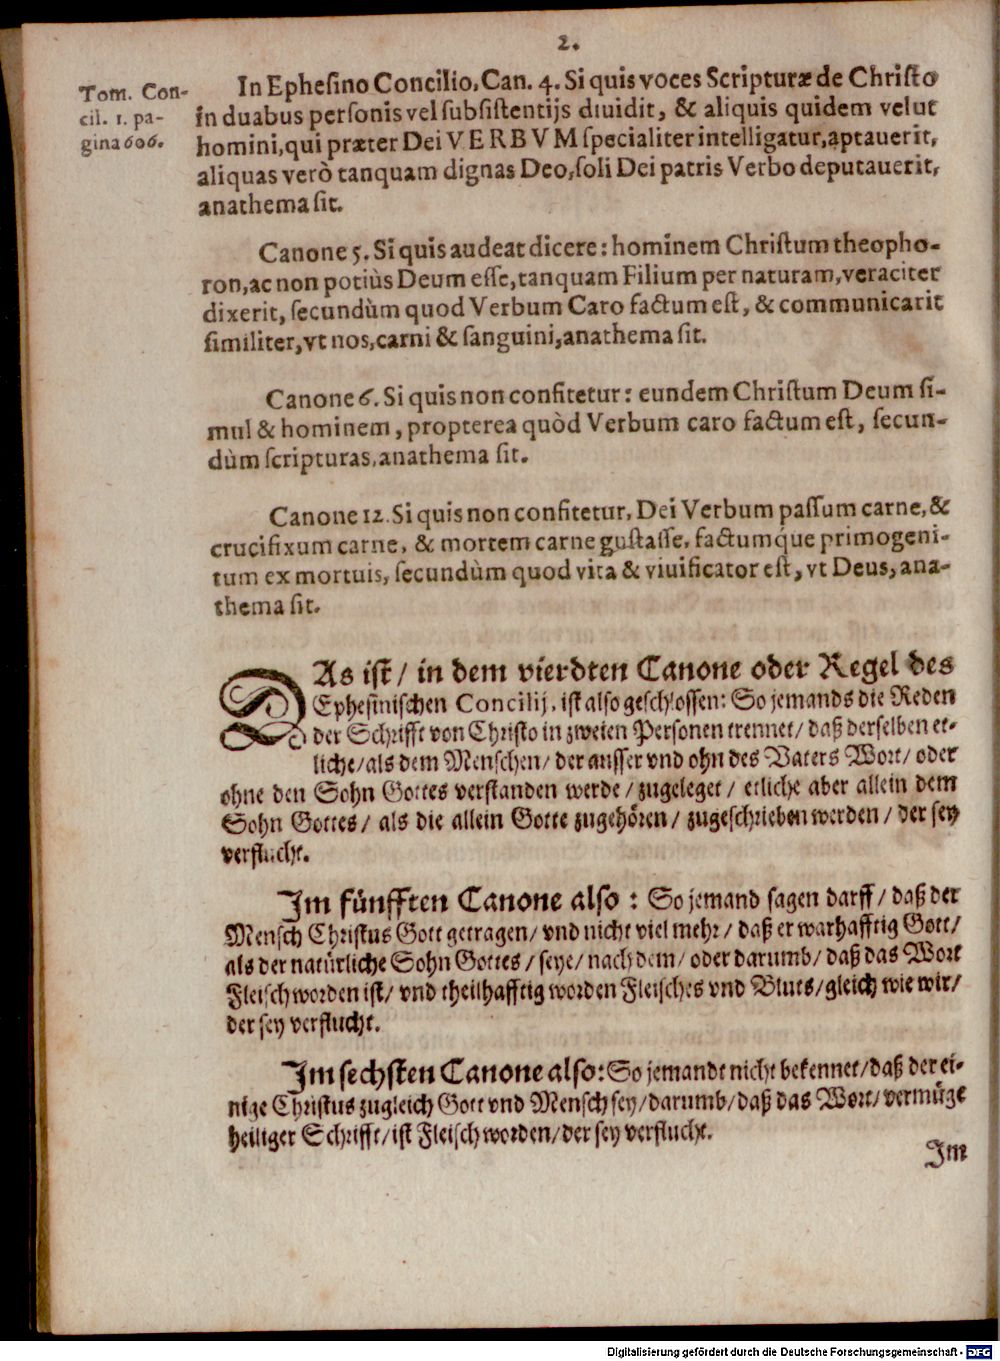 2.
Tom. Con-
cil. 1. pa-
gina 606.
In Ephesino Concilio, Can. 4. Si quis voces Scripturæ de Christo
in duabus personis vel subsistentijs diuidit, & aliquis quidem velut
homini, qui præter Dei VERBVM specialiter intelligatur, aptauerit,
aliquas verò tanquam dignas Deo, soli Dei patris Verbo deputauerit,
anathema sit.
Canone 5. Si quis audeat dicere: hominem Christum theopho-
ron, ac non potiùs Deum esse, tanquam Filium per naturam, veraciter
dixerit, secundùm quod Verbum Caro factum est, & communicarit
similiter, vt nos, carni & sanguini, anathema sit.
Canone 6. Si quis non confitetur: eundem Christum Deum si-
mul & hominem, propterea quòd Verbum caro factum est, secun-
dùm scripturas, anathema sit.
Canone 12. Si quis non confitetur, Dei Verbum passum carne, &
crucifixum carne, & mortem carne gustasse, factumq́ue primogeni-
tum ex mortuis, secundùm quod vita & viuificator est, vt Deus, ana-
thema sit.
DAs ist / in dem vierdten Canone oder Regel des
Ephesinischen Concilij, ist also geschlossen: So jemands die Reden
der Schrifft von Christo in zweien Personen trennet / daß derselben et-
liche / als dem Menschen / der ausser vnd ohn des Vaters Wort / oder
ohne den Sohn Gottes verstanden werde / zugeleget / etliche aber allein dem
Sohn Gottes / als die allein Gotte zugehören / zugeschrieben werden / der sey
verflucht.
Im fünfften Canone also : So jemand sagen darff / daß der
Mensch Christus Gott getragen / vnd nicht viel mehr / daß er warhafftig Gott /
als der natürliche Sohn Gottes / seye / nach dem / oder darumb / daß das Wort
Fleisch worden ist / vnd theilhafftig worden Fleisches vnd Bluts / gleich wie wir /
der sey verflucht.
Im sechsten Canone also: So jemandt nicht bekennet / daß der ei-
nige Christus zugleich Gott vnd Mensch sey / darumb / daß das Wort / vermüge
heiliger Schrifft / ist Fleisch worden / der sey verflucht.
Im
Digitalisierung gefördert durch die Deutsche Forschungsgemeinschaft - DFG